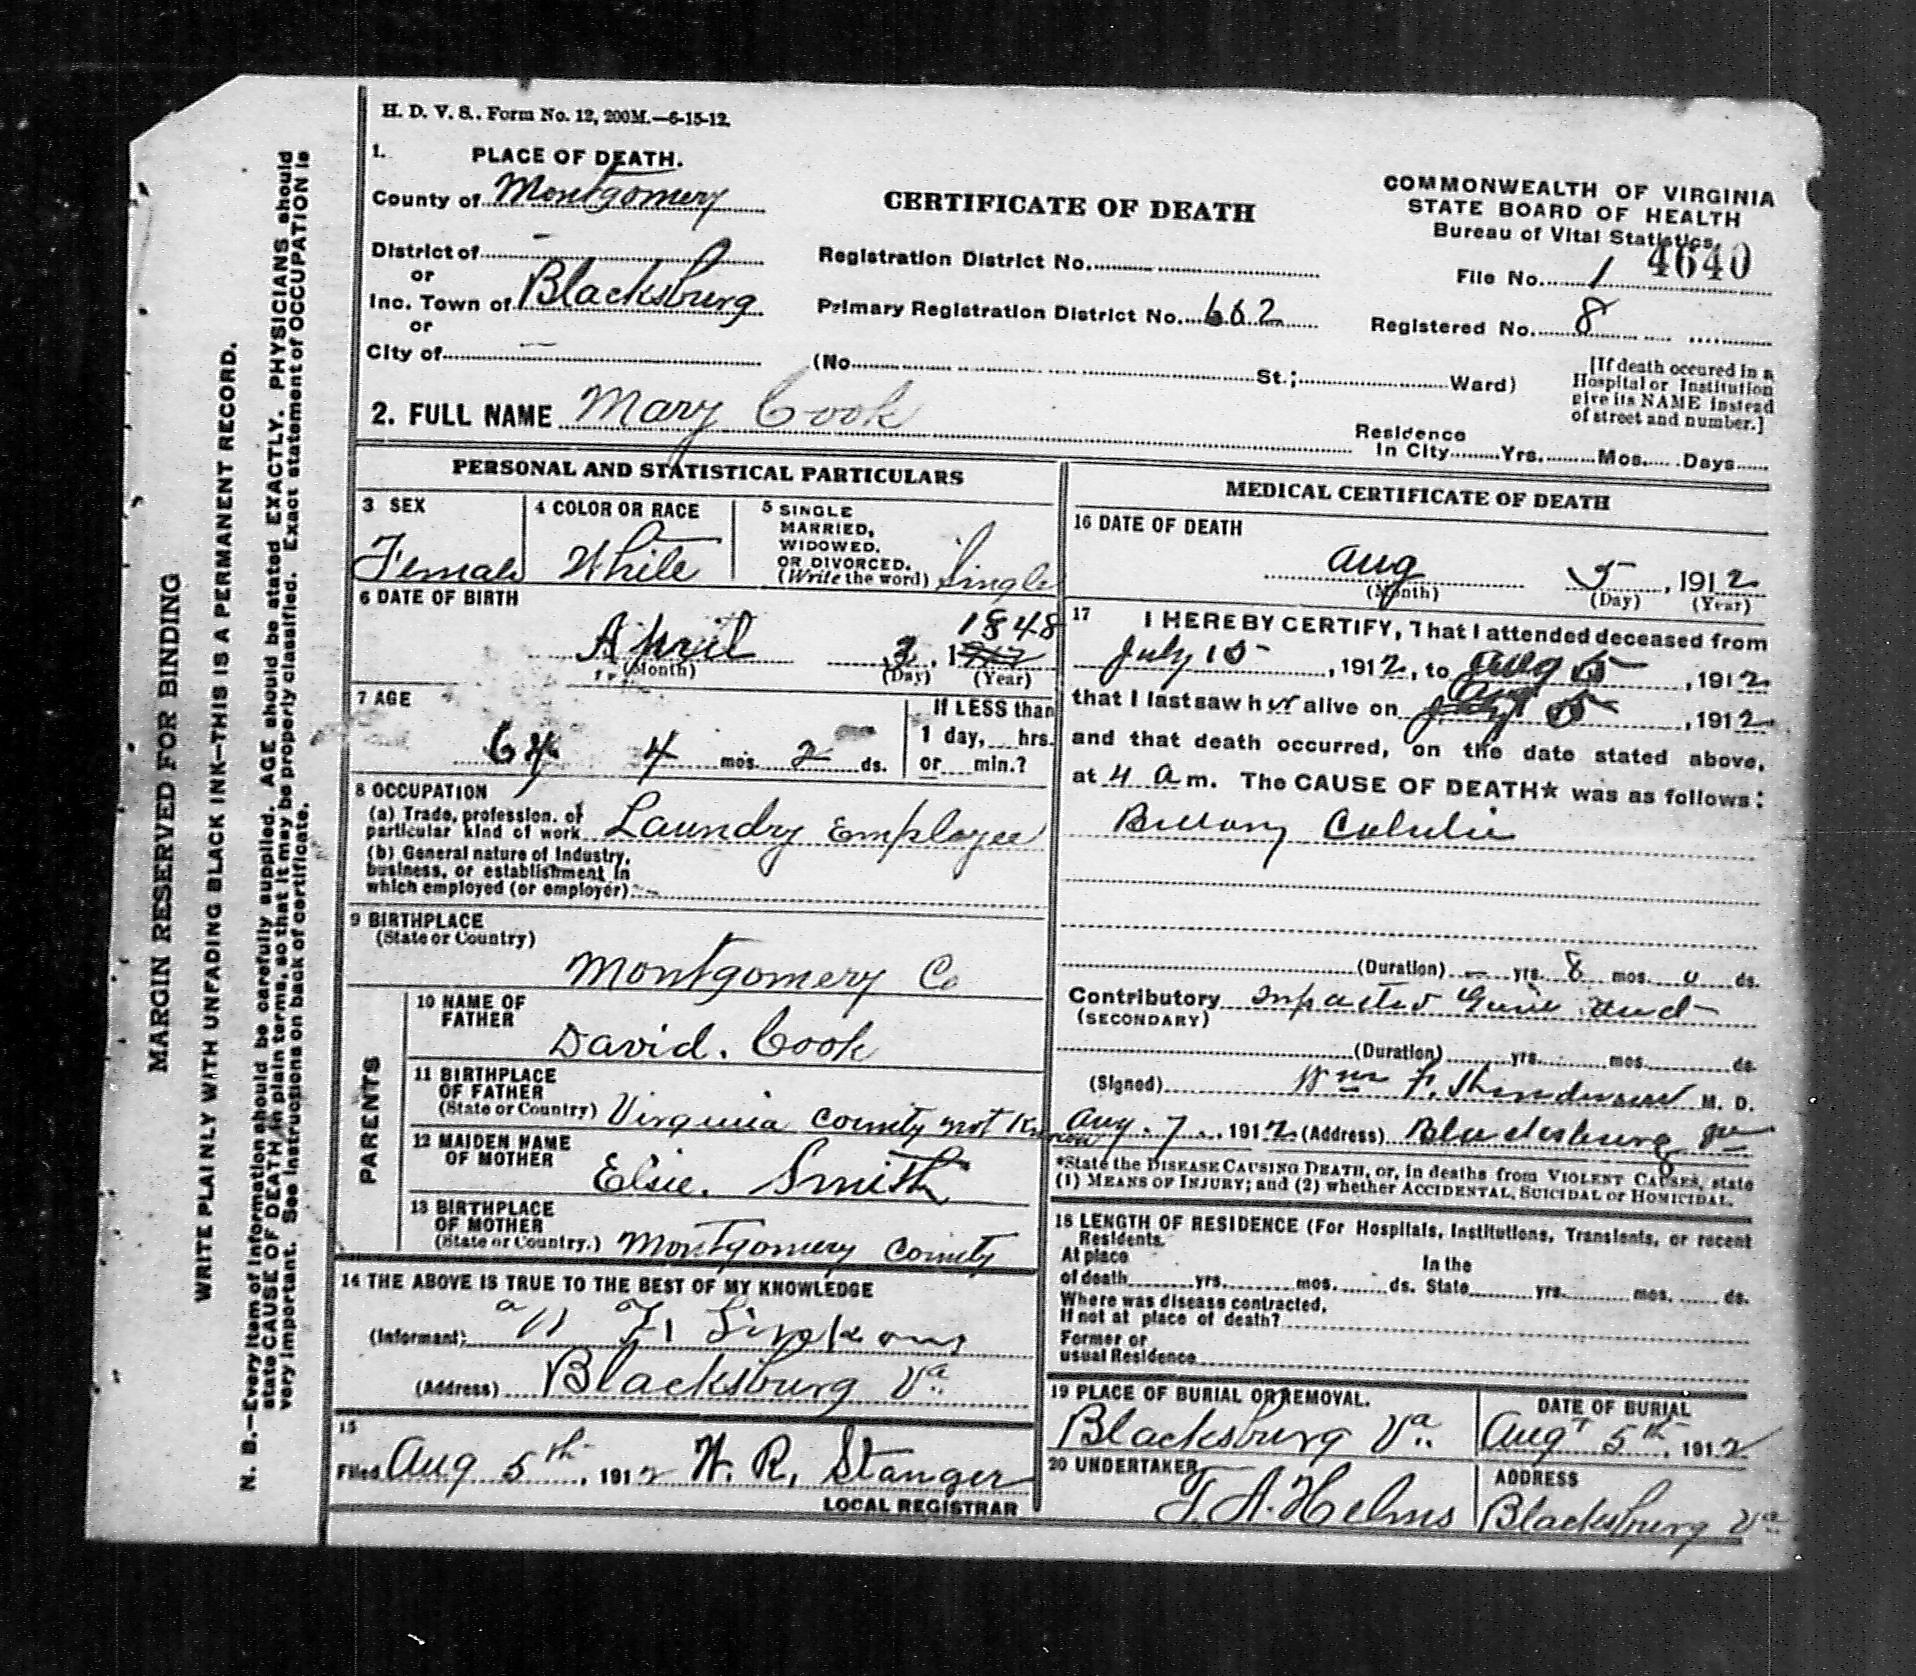 H. D. V. S. Form No. 12, 200M.—6-15-12.
1. PLACE OF DEATH.
County of Montgomery
District of —
or
Inc. Town of Blacksburg
or
City of —
CERTIFICATE OF DEATH
Registration District No.
Primary Registration District No. 662
(No. St.; Ward)
COMMONWEALTH OF VIRGINIA
STATE BOARD OF HEALTH
Bureau of Vital Statistics.
4640
File No. 1
Registered No. 8
[If death occured in a
Hospital or Institution
give its NAME instead
of street and number.]
2. FULL NAME Mary Cook
Residence
In City Yrs. Mos. Days
PERSONAL AND STATISTICAL PARTICULARS
3 SEX
Female
4 COLOR OR RACE
White
5 SINGLE
MARRIED,
WIDOWED.
OR DIVORCED.
(Write the word) Single
6 DATE OF BIRTH
1848
April 3, 1912
(Month) (Day) (Year)
7 AGE
64 4 mos. 2 ds.
If LESS than
1 day, hrs.
or min.?
8 OCCUPATION
(a) Trade, profession. or
particular kind of work Laundry Employee
(b) General nature of Industry,
business, or establishment in
which employed (or employer) —
9 BIRTHPLACE
(State or Country)
Montgomery Co
PARENTS
10 NAME OF
FATHER
David. Cook
11 BIRTHPLACE
OF FATHER
(State or Country) Virginia County not Known
12 MAIDEN NAME
OF MOTHER
Elsie. Smith
13 BIRTHPLACE
OF MOTHER
(State or Country.) Montgomery County
14 THE ABOVE IS TRUE TO THE BEST OF MY KNOWLEDGE
(Informant)
(Address) Blacksburg Va.
15
Filed Aug 5th, 1912 W. R. Stanger
LOCAL REGISTRAR
MEDICAL CERTIFICATE OF DEATH
16 DATE OF DEATH
Aug 5, 1912
(Month) (Day) (Year)
17 I HEREBY CERTIFY, That I attended deceased from
July 15, 1912, to Aug 5, 1912
that I last saw her alive on Aug 5, 1912
and that death occurred, on the date stated above,
at 4 a m. The CAUSE OF DEATH* was as follows:
(Duration) — yrs. 8 mos. 0 ds.
Contributory Impacted
(SECONDARY)
(Duration) yrs. mos. ds.
(Signed) Wm F. Henderson M. D.
Aug. 7, 1912 (Address) Blacksburg Va
*State the DISEASE CAUSING DEATH, or, in deaths from VIOLENT CAUSES, state
(1) MEANS OF INJURY; and (2) whether ACCIDENTAL, SUICIDAL or HOMICIDAL.
18 LENGTH OF RESIDENCE (For Hospitals, Institutions, Transients, or recent
Residents.
At place In the
of death yrs. mos. ds. State yrs. mos. ds.
Where was disease contracted,
If not at place of death?
Former or
usual Residence
19 PLACE OF BURIAL OR REMOVAL.
Blacksburg Va.
DATE OF BURIAL
Augt 5th, 1912
20 UNDERTAKER
T. A. Helms
ADDRESS
Blacksburg Va
MARGIN RESERVED FOR BINDING
WRITE PLAINLY WITH UNFADING BLACK INK—THIS IS A PERMANENT RECORD.
N. B.—Every item of information should be carefully supplied. AGE should be stated EXACTLY. PHYSICIANS should
state CAUSE OF DEATH in plain terms, so that it may be properly classified. Exact statement of OCCUPATION is
very important. See instructions on back of certificate.